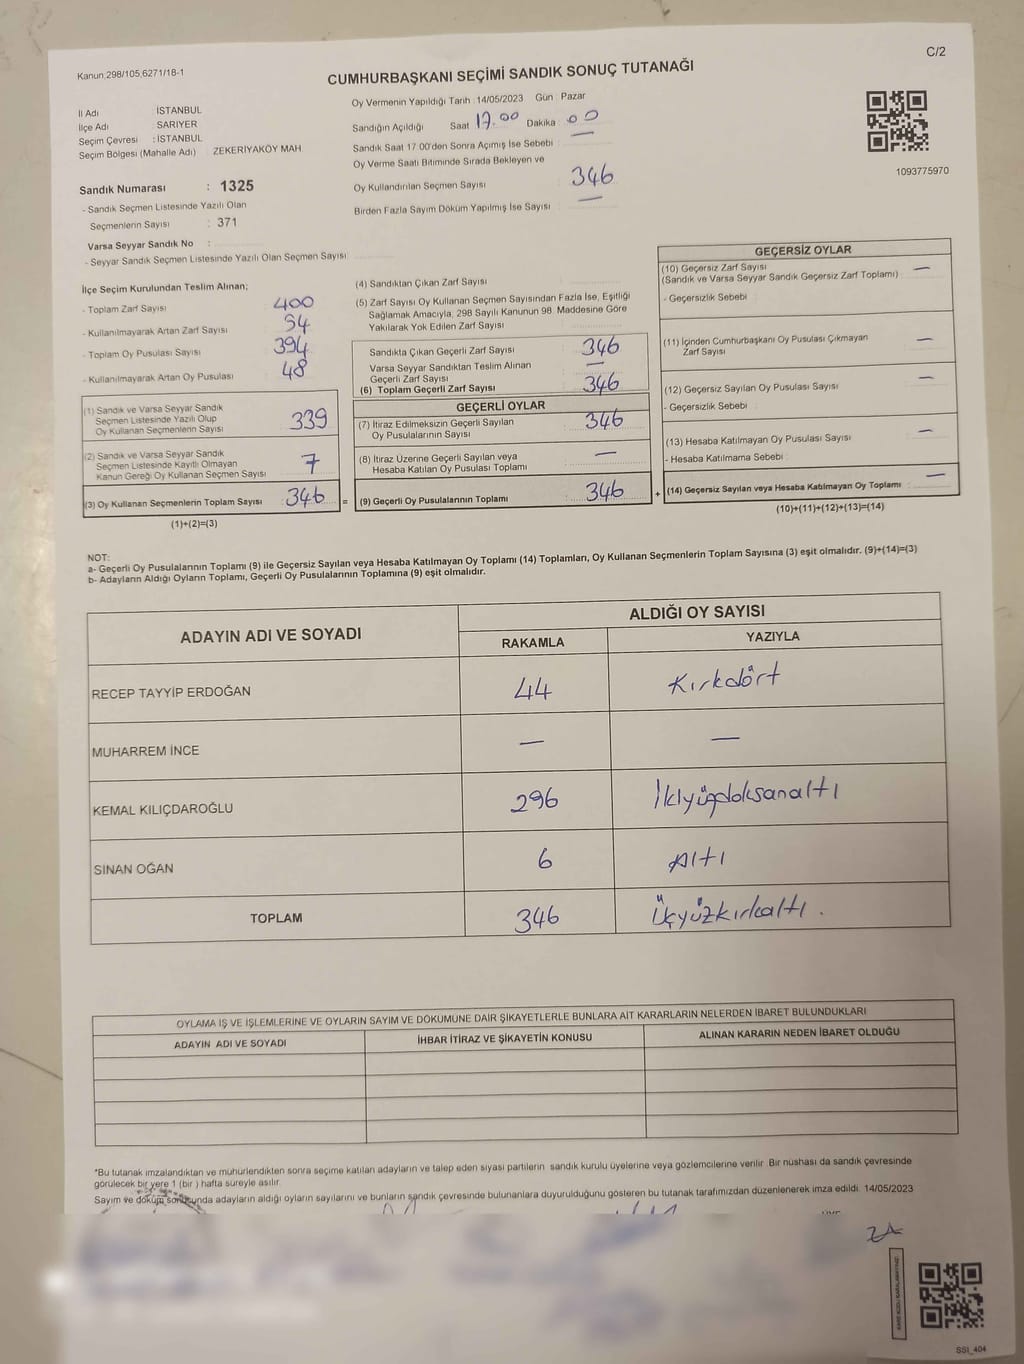 C/2
Kanun,298/105,6271/18-1
CUMHURBAŞKANI SEÇİMİ SANDIK SONUÇ TUTANAĞI
İl Adı İSTANBUL
İlçe Adı SARIYER
Seçim Çevresi : İSTANBUL
Seçim Bölgesi (Mahalle Adı) ZEKERİYAKÖY MAH.
Sandık Numarası : 1325
- Sandık Seçmen Listesinde Yazılı Olan
Seçmenlerin Sayısı : 371
Varsa Seyyar Sandık No :
- Seyyar Sandık Seçmen Listesinde Yazılı Olan Seçmen Sayısı
Oy Vermenin Yapıldığı Tarih : 14/05/2023 Gün : Pazar
Sandığın Açıldığı Saat 17.00 Dakika 00
Sandık Saat 17 00'den Sonra Açımış İse Sebebi —
Oy Verme Saati Bitiminde Sırada Bekleyen ve
Oy Kullandırılan Seçmen Sayısı 346
Birden Fazla Sayım Döküm Yapılmış İse Sayısı —
1093775970
İlçe Seçim Kurulundan Teslim Alınan;
- Toplam Zarf Sayısı 400
- Kullanılmayarak Artan Zarf Sayısı 54
- Toplam Oy Pusulası Sayısı 394
- Kullanılmayarak Artan Oy Pusulası 48
(1) Sandık ve Varsa Seyyar Sandık
Seçmen Listesinde Yazılı Olup
Oy Kullanan Seçmenlerin Sayısı 339
(2) Sandık ve Varsa Seyyar Sandık
Seçmen Listesinde Kayıtlı Olmayan
Kanun Gereği Oy Kullanan Seçmen Sayısı 7
(3) Oy Kullanan Seçmenlerin Toplam Sayısı 346 =
(1)+(2)=(3)
(4) Sandıktan Çıkan Zarf Sayısı
(5) Zarf Sayısı Oy Kullanan Seçmen Sayısından Fazla İse, Eşitliği
Sağlamak Amacıyla, 298 Sayılı Kanunun 98. Maddesine Göre
Yakılarak Yok Edilen Zarf Sayısı
Sandıkta Çıkan Geçerli Zarf Sayısı 346
Varsa Seyyar Sandıktan Teslim Alınan
Geçerli Zarf Sayısı —
(6) Toplam Geçerli Zarf Sayısı 346
GEÇERLİ OYLAR
(7) İtiraz Edilmeksizin Geçerli Sayılan
Oy Pusulalarının Sayısı 346
(8) İtiraz Üzerine Geçerli Sayılan veya
Hesaba Katılan Oy Pusulası Toplamı —
(9) Geçerli Oy Pusulalarının Toplamı 346 +
GEÇERSİZ OYLAR
(10) Geçersiz Zarf Sayısı —
(Sandık ve Varsa Seyyar Sandık Geçersiz Zarf Toplamı)
- Geçersizlik Sebebi :
(11) İçinden Cumhurbaşkanı Oy Pusulası Çıkmayan —
Zarf Sayısı
(12) Geçersiz Sayılan Oy Pusulası Sayısı —
- Geçersizlik Sebebi
(13) Hesaba Katılmayan Oy Pusulası Sayısı —
- Hesaba Katılmama Sebebi :
(14) Geçersiz Sayılan veya Hesaba Katılmayan Oy Toplamı —
(10)+(11)+(12)+(13)=(14)
NOT:
a- Geçerli Oy Pusulalarının Toplamı (9) ile Geçersiz Sayılan veya Hesaba Katılmayan Oy Toplamı (14) Toplamları, Oy Kullanan Seçmenlerin Toplam Sayısına (3) eşit olmalıdır. (9)+(14)=(3)
b- Adayların Aldığı Oyların Toplamı, Geçerli Oy Pusulalarının Toplamına (9) eşit olmalıdır.
ADAYIN ADI VE SOYADI ALDIĞI OY SAYISI
RAKAMLA YAZIYLA
RECEP TAYYİP ERDOĞAN 44 Kırkdört
MUHARREM İNCE — —
KEMAL KILIÇDAROĞLU 296 İkiyüzdoksanaltı
SİNAN OĞAN 6 Altı
TOPLAM 346 Üçyüzkırkaltı.
OYLAMA İŞ VE İŞLEMLERİNE VE OYLARIN SAYIM VE DÖKÜMÜNE DAİR ŞİKAYETLERLE BUNLARA AİT KARARLARIN NELERDEN İBARET BULUNDUKLARI
ADAYIN ADI VE SOYADI İHBAR İTİRAZ VE ŞİKAYETİN KONUSU ALINAN KARARIN NEDEN İBARET OLDUĞU
*Bu tutanak imzalandıktan ve mühürlendikten sonra seçime katılan adayların ve talep eden siyasi partilerin sandık kurulu üyelerine veya gözlemcilerine verilir. Bir nüshası da sandık çevresinde
görülecek bir yere 1 (bir ) hafta süreyle asılır.
Sayım ve döküm sonucunda adayların aldığı oyların sayılarını ve bunların sandık çevresinde bulunanlara duyurulduğunu gösteren bu tutanak tarafımızdan düzenlenerek imza edildi. 14/05/2023
SSI_404